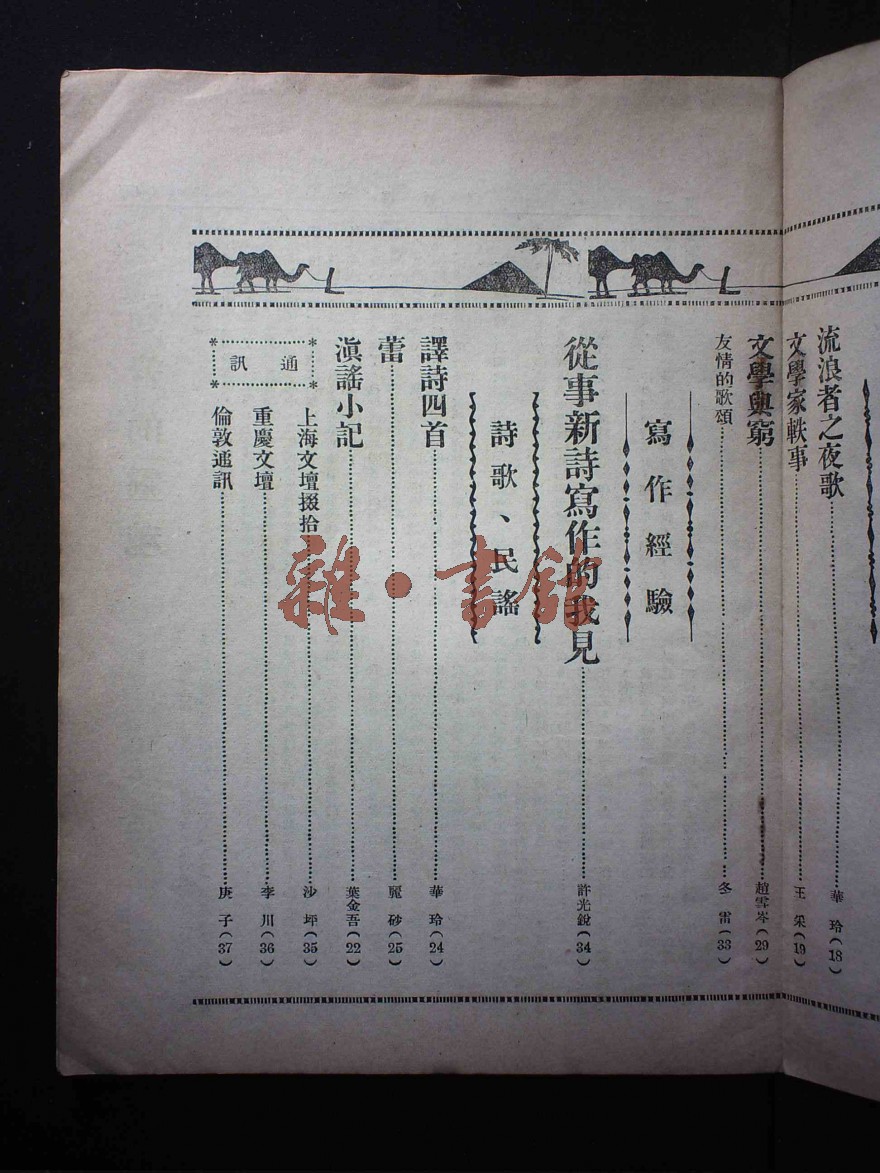 流浪者之夜歌 華玲(18)
文學家軼事 王罙(19)
文學與窮 趙雪岑(29)
友情的歌頌 冬雷(33)
寫作經驗
從事新詩寫作的我見 許光銳(34)
詩歌、民謠
譯詩四首 華玲(24)
蕾 麗砂(25)
滇謠小記 葉金吾(22)
通訊
上海文壇掇拾 沙坪(35)
重慶文壇 李川(36)
倫敦通訊 庚子(37)
雜·書館